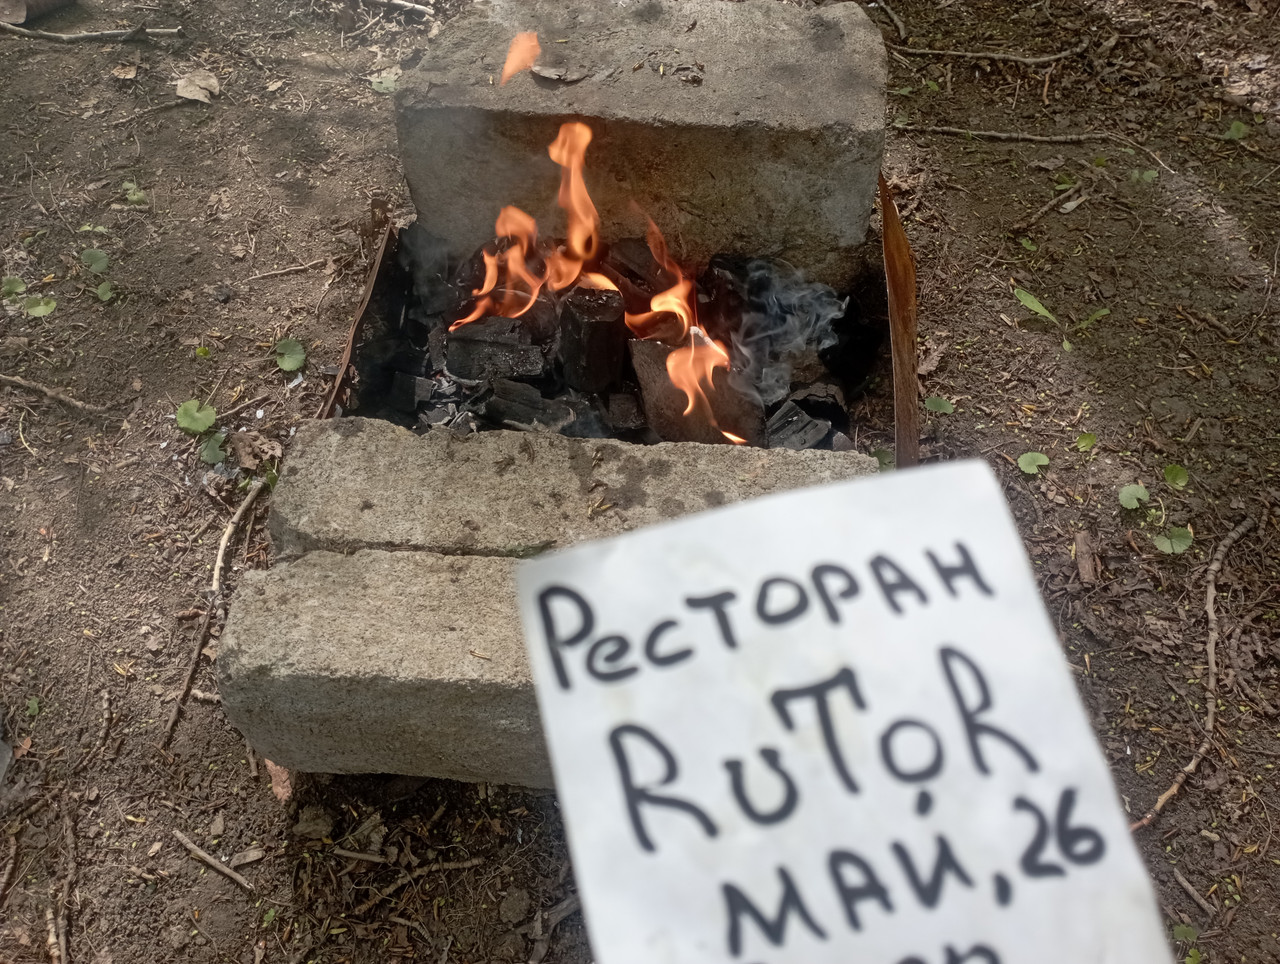 Ресторан
RuToR
май, 26